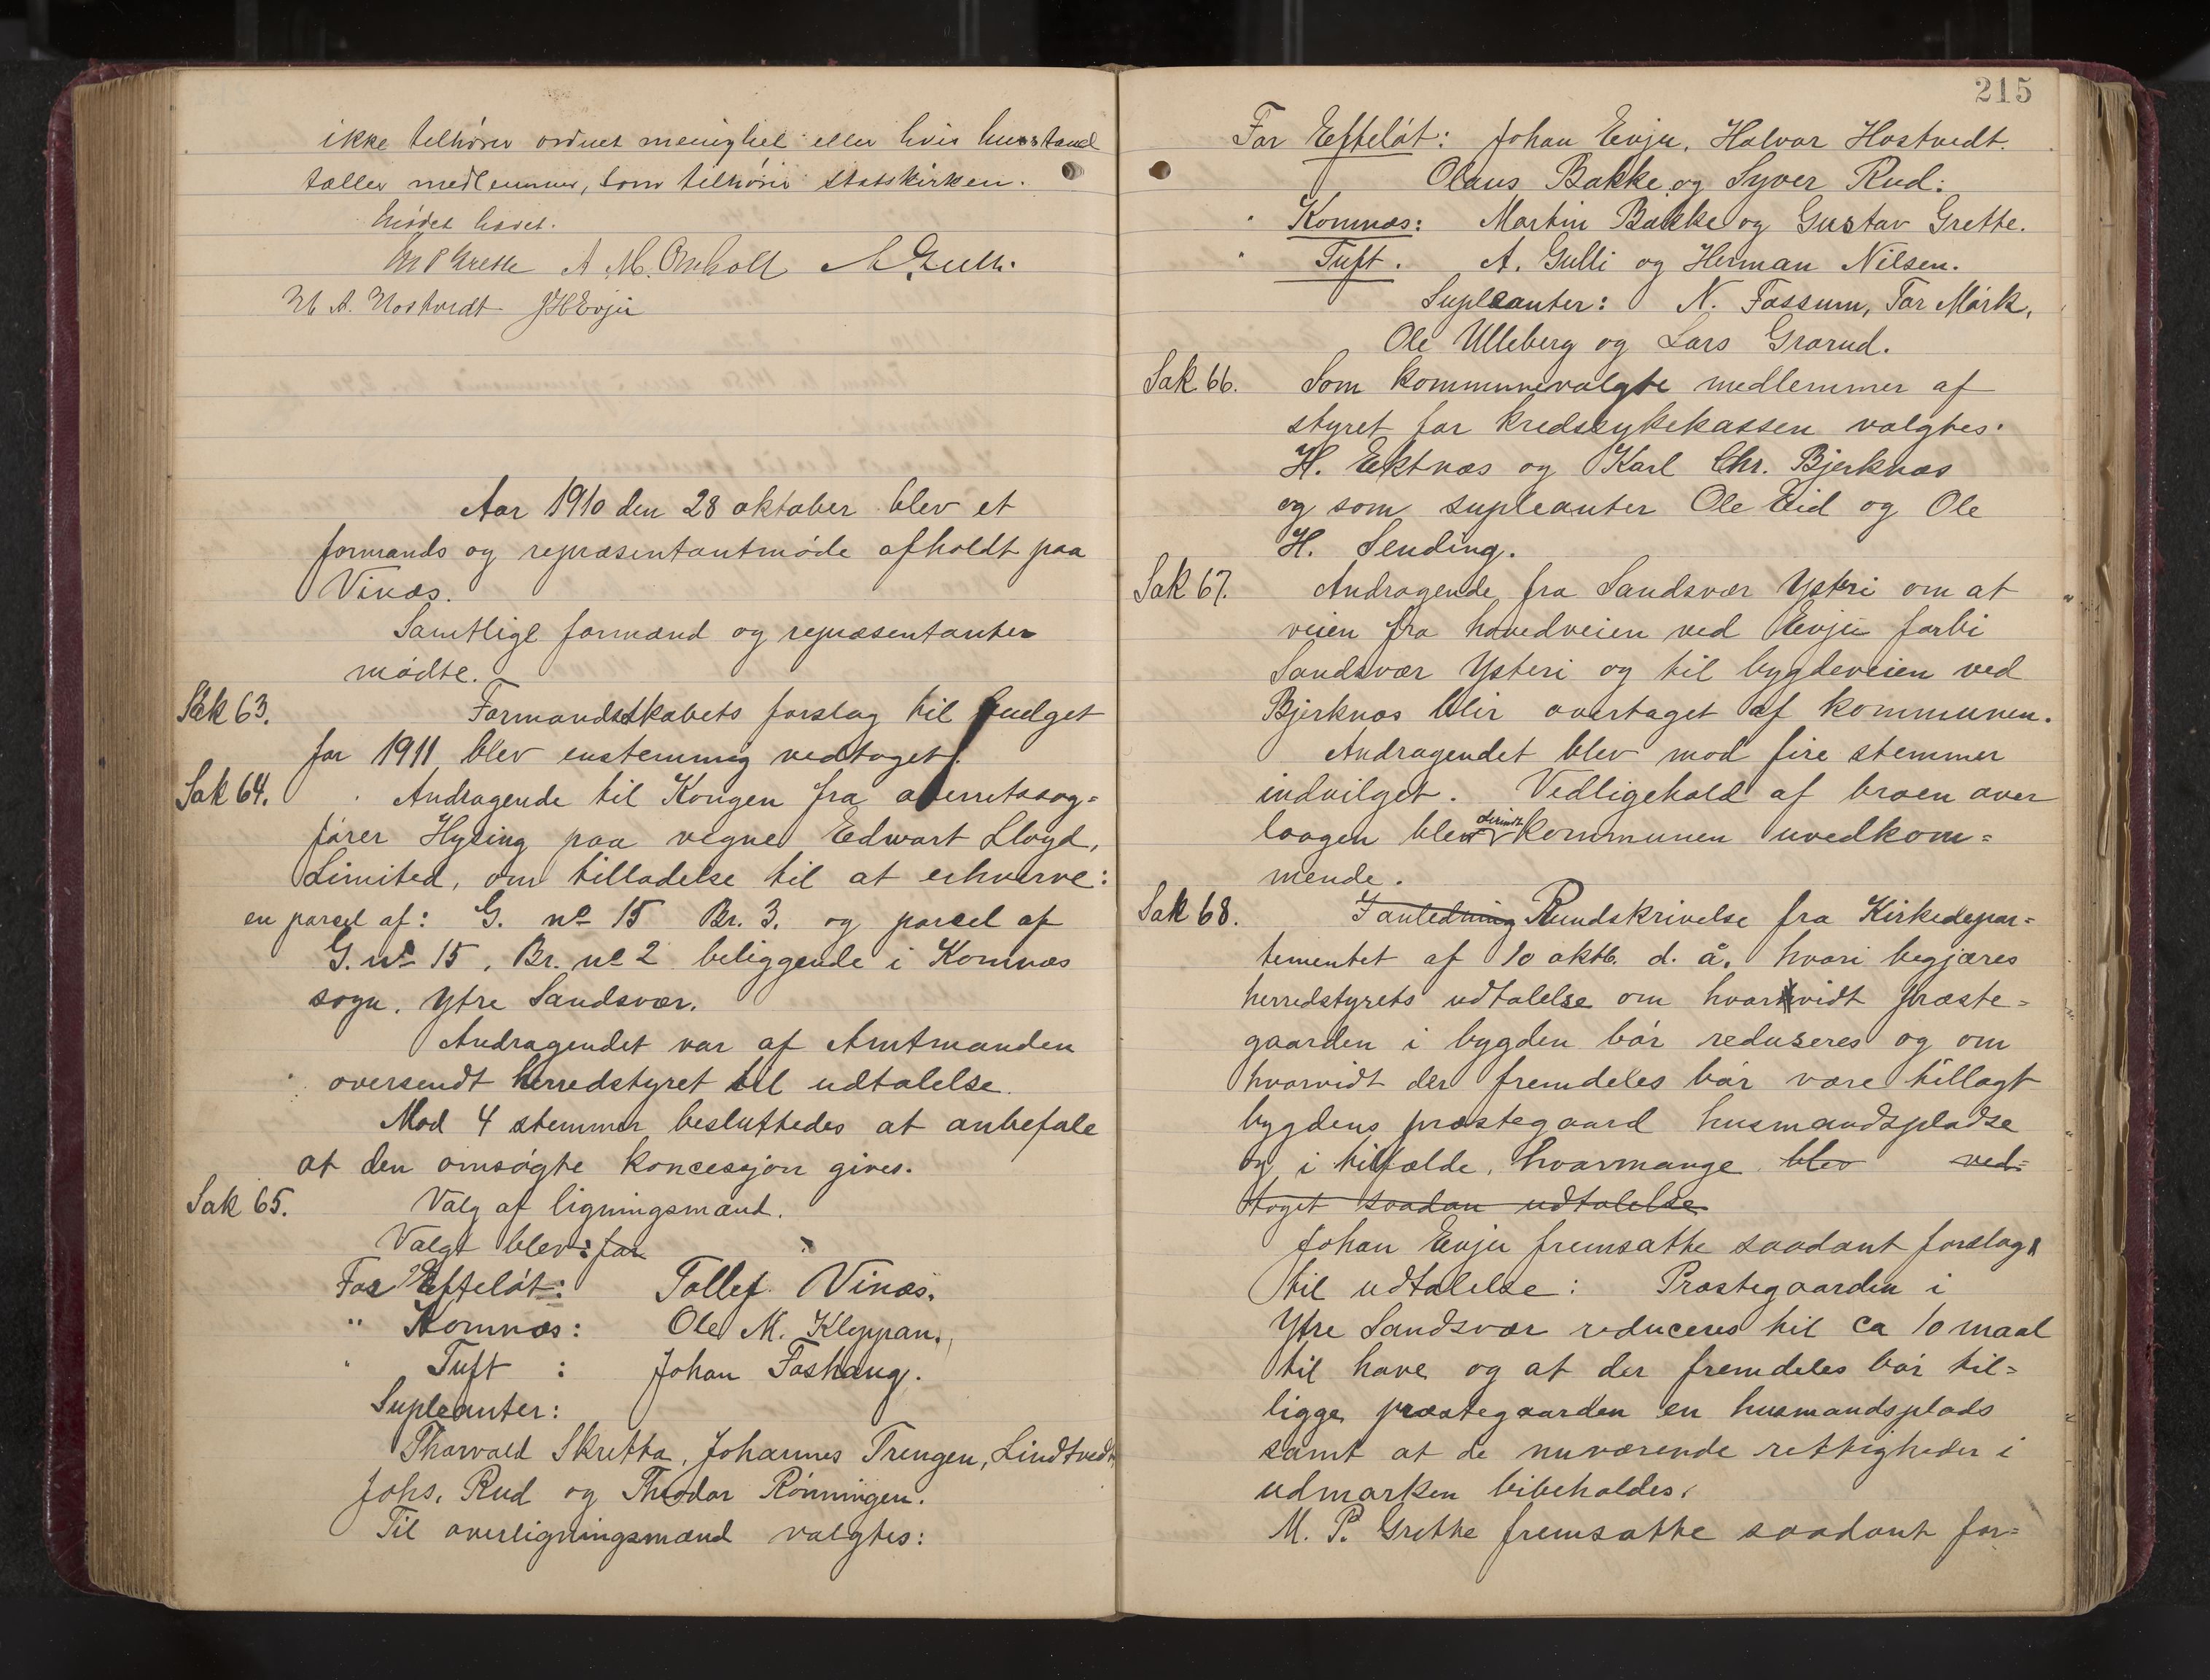 ikke tilhører ordnet menighet eller hvis husstand
tæller medlemmer, som tilhører statskirken.
Mødet hævet.
M P Grette A M. Omholt A Gulli.
H A. Hostvedt J H Evju
Aar 1910 den 28 oktober blev et
formands og repræsentantmøde afholdt paa
Vinæs.
Samtlige formænd og repræsentanter
mødte.
Sak 63. Formandsskabets forslag til budget
for 1911 blev enstemmig vedtaget.
Sak 64. Andragende til Kongen fra overretssag=
fører Hysing paa vegne Edwart Lloyd,
Limited, om tilladelse til at erhverve:
en parsel af: G. no 15 Br. 3. og parcel af
G. no 15, Br. no 2 beliggende i Komnæs
sogn, Ytre Sandsvær.
Andragendet var af Amtmanden
oversendt herredstyret til udtalelse.
Mod 4 stemmer besluttedes at anbefale
at den omsøgte koncessjon gives.
Sak 65. Valg af ligningsmænd.
Valgt blev: for
For Efteløt: Tollef Vinæs.
" Komnæs: Ole M. Kleppan.
" Tuft : Johan Foshaug.
Supleanter:
Thorvald Skretta, Johannes Trengen, Lindtvedt,
Johs. Rud og Theodor Rønningen.
Til overligningsmænd valgtes:
215
For Efteløt: Johan Evju, Halvor Hostvedt.
Olaus Bakke og Syver Rud.
" Komnæs: Martin Bakke og Gustav Grette.
" Tuft. A. Gulli og Herman Nilsen.
Supleanter: N. Fossum, Tor Mørk,
Ole Ulleberg og Lars Grorud.
Sak 66. Som kommunevalgte medlemmer af
styret for kredssykekassen valgtes:
H. Ektnæs og Karl Chr. Bjerknæs
og som supleanter Ole Eid og Ole
H. Sending.
Sak 67. Andragende fra Sandsvær Ysteri om at
veien fra hovedveien ved Evju forbi
Sandsvær Ysteri og til bygdeveien ved
Bjerknæs blir overtaget af kommunen.
Andragendet blev mod fire stemmer
indvilget. Vedligehold af broen over
laagen blev kommunen uvedkom=
mende.
Sak 68. I anledning Rundskrivelse fra Kirkedepar=
tementet af 10 oktb. d. å. hvori begjæres
herredstyrets udtalelse om hvorvidt præste=
gaarden i bygden bør reduseres og om
hvorvidt der fremdeles bør være tillagt
bygdens præstegaard husmandspladse
og i tilfælde, hvormange blev ved=
taget saadan udtalelse
Johan Evju fremsatte saadant forslag
til udtalelse: Præstegaarden i
Ytre Sandsvær reduceres til ca 10 maal
til have og at der fremdeles bør til=
ligge præstegaarden en husmandsplads
samt at de nuværende rettigheder i
udmarken bibeholdes.
M. P. Grette fremsatte saadant for=